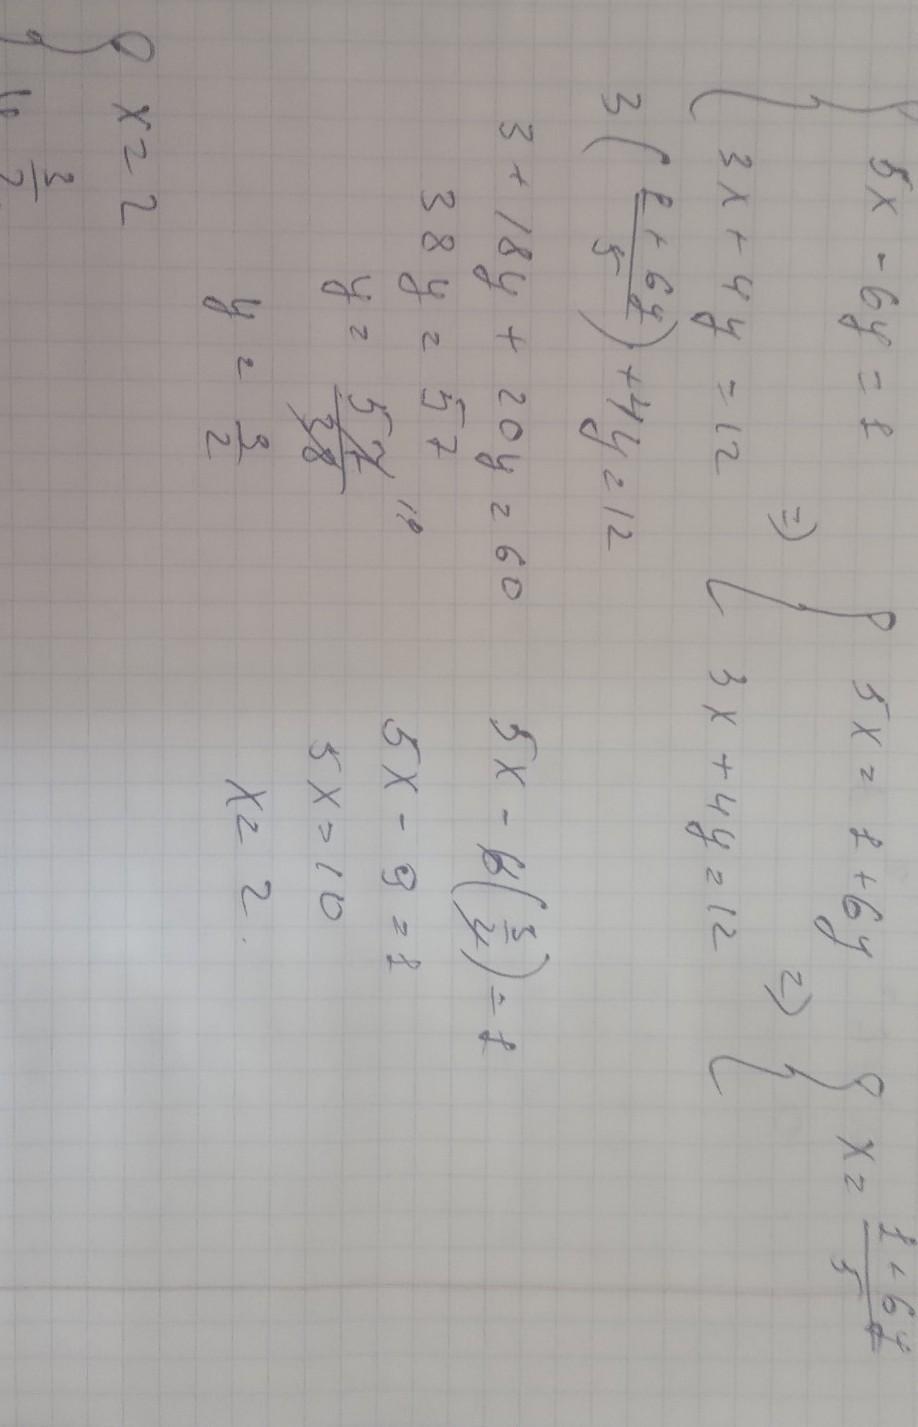 { 5x - 6y = 1 => { 5x = 1 + 6y => { x = (1 + 6y)/5
3x + 4y = 12 3x + 4y = 12
3((1 + 6y)/5) + 4y = 12
3 + 18y + 20y = 60
38y = 57
y = 57/38 19
y = 3/2
5x - 6(3/2) = 1
5x - 9 = 1
5x = 10
x = 2.
{ x = 2
y = 3/2.